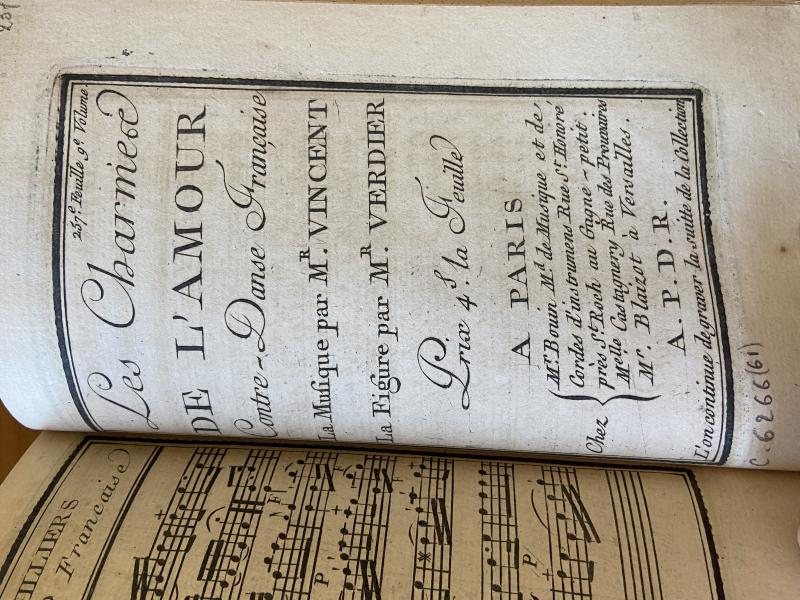 237.e Feuille 9.e Volume.
Les Charmes
DE L'AMOUR
Contre-Danse Française
La Musique par M.R VINCENT
La Figure par M.R VERDIER
Prix 4.s la Feuille
A PARIS
Chez
Mr. Bouin M.d de Musique et de
Cordes d'instrumens Rue S.t Honoré
près S.t Roch au Gagne-petit.
Melle Castagnery Rue des Prouvaires
Mr. Blaizot à Versailles.
A. P. D. R.
L'on continue de graver la suitte de la Collection
C. 6266 (61)
Française
P
P